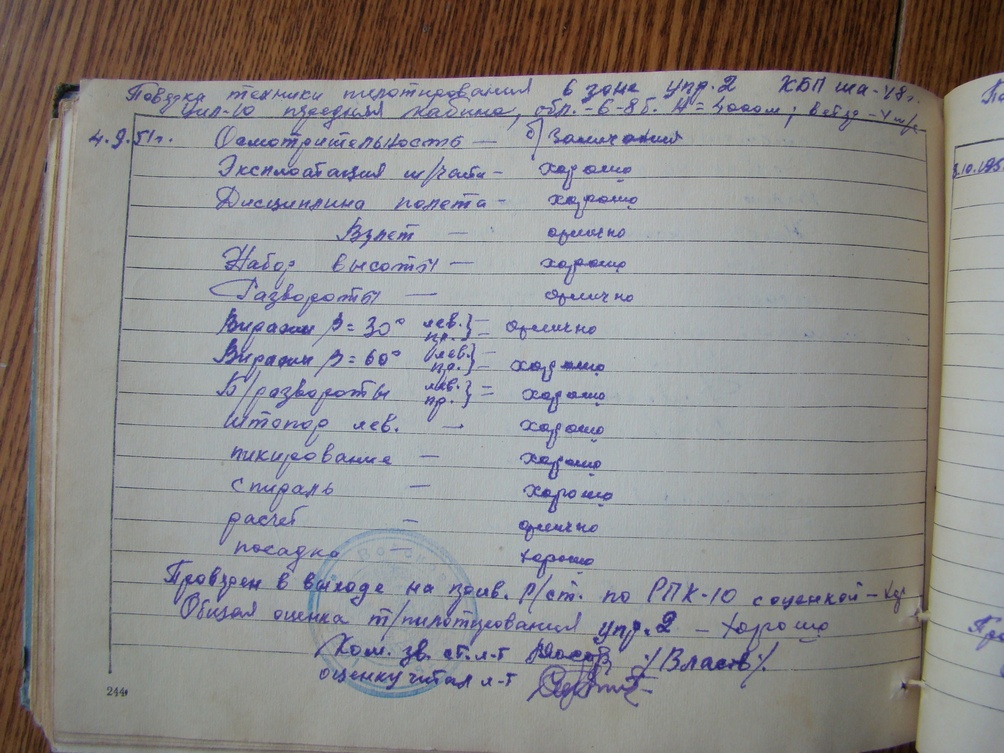 Повзрка техники пилотирования в зоне упр. 2 КБП ша-48г.
Уил-10 передняя кабина, обл. - 6-8б. Н = 3000м; ветер - 4 м/с
4.9.51г. Осмотрительность — б/ Замечания
Эксплоатация м/части - хорошо
Дисциплина полета - хорошо
Взлет — отлично
Набор высоты — хорошо
Развороты — отлично
Виражи β = 30° лев. пр.} = отлично
Виражи β = 60° лев. пр.} = хорошо
Б/развороты лев. пр.} = хорошо
штопор лев. — хорошо
пикирование — хорошо
спираль — хорошо
расчет — отлично
посадка — хорошо
Проверен в выходе на прив. Р/ст. по РПК-10 с оценкой - хор
Общая оценка т/пилотирования упр. 2 - хорошо
Ком. зв. ст. л-т /Власов/
оценку читал л-т
244
3.10.195